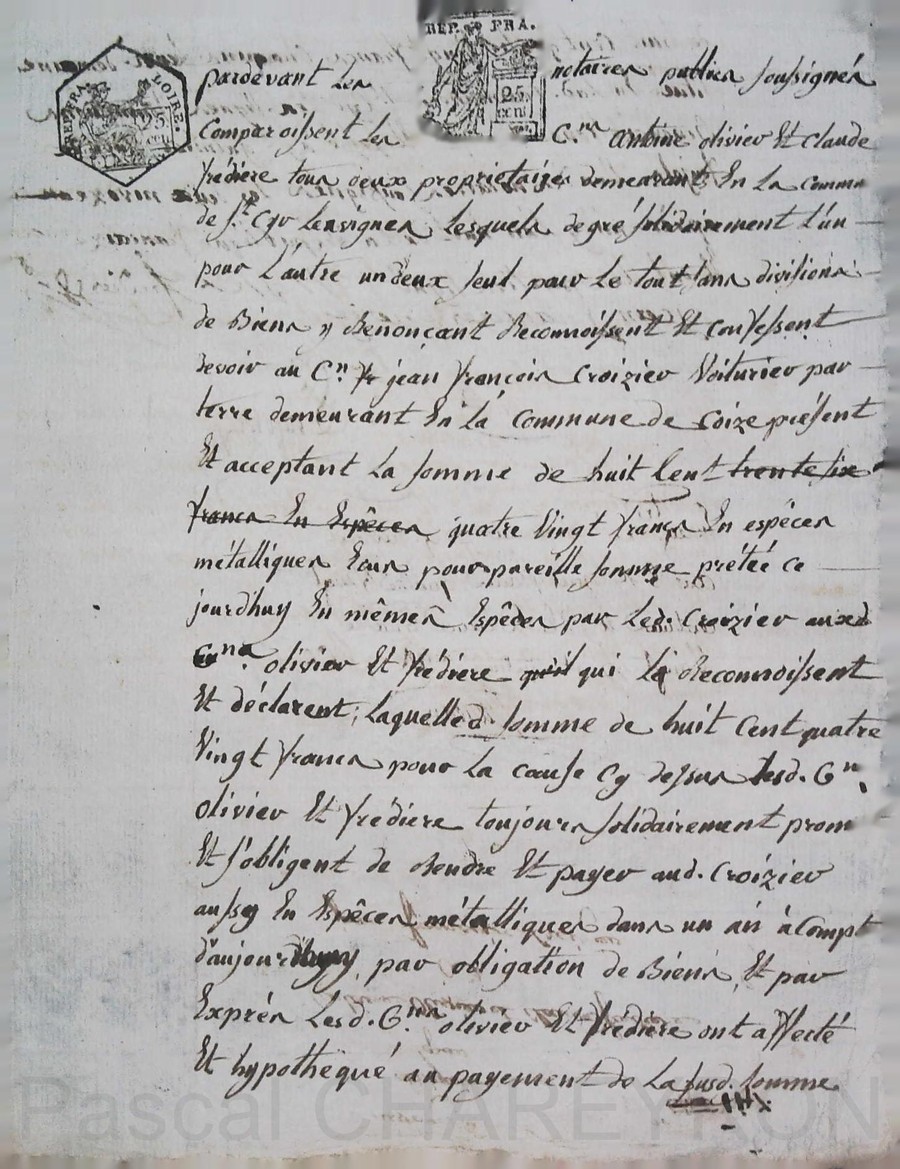 REP. FRA.
25
CENT.
REP. FRA. LOIRE.
25
pardevant Les notaires publics soussignés
Comparoissent Les C.ns antoine olivier Et Claude
frédière tous deux propriétaires demeurant En La Commu
de S.t Cyr Lesvignes Lesquels de gré solidairement L'un
pour L'autre un deux seul pour Le tout sans divisions
de Biens y Renonçant Reconnoissent Et Confessent
devoir au C.n jean françois Croizier Voiturier par
terre demeurant En La Commune de Coize présent
Et acceptant La somme de huit Cent trente six
francs En Espêces quatre Vingt francs En espèces
métalliques Eaux pour pareille somme prétée ce
jourdhuy En mêmes Espêces par Led. Croizier auxd
C.ns olivier Et frédiere qui Le Reconnoissent
Et déclarent, Laquelle d. somme de huit Cent quatre
Vingt francs pour La cause Cy dessus Lesd. C.n
olivier Et frédiere toujours solidairement prom
Et s'obligent de Rendre Et payer aud. Croizier
aussy En Espêces métalliques dans un an à Compt
d'aujourdhuy, par obligation de Biens, Et par
Exprés Lesd. C.ns olivier Et frédiere ont affecté
Et hypothéqué au payement de La susd. somme
Pascal CHAREYRON